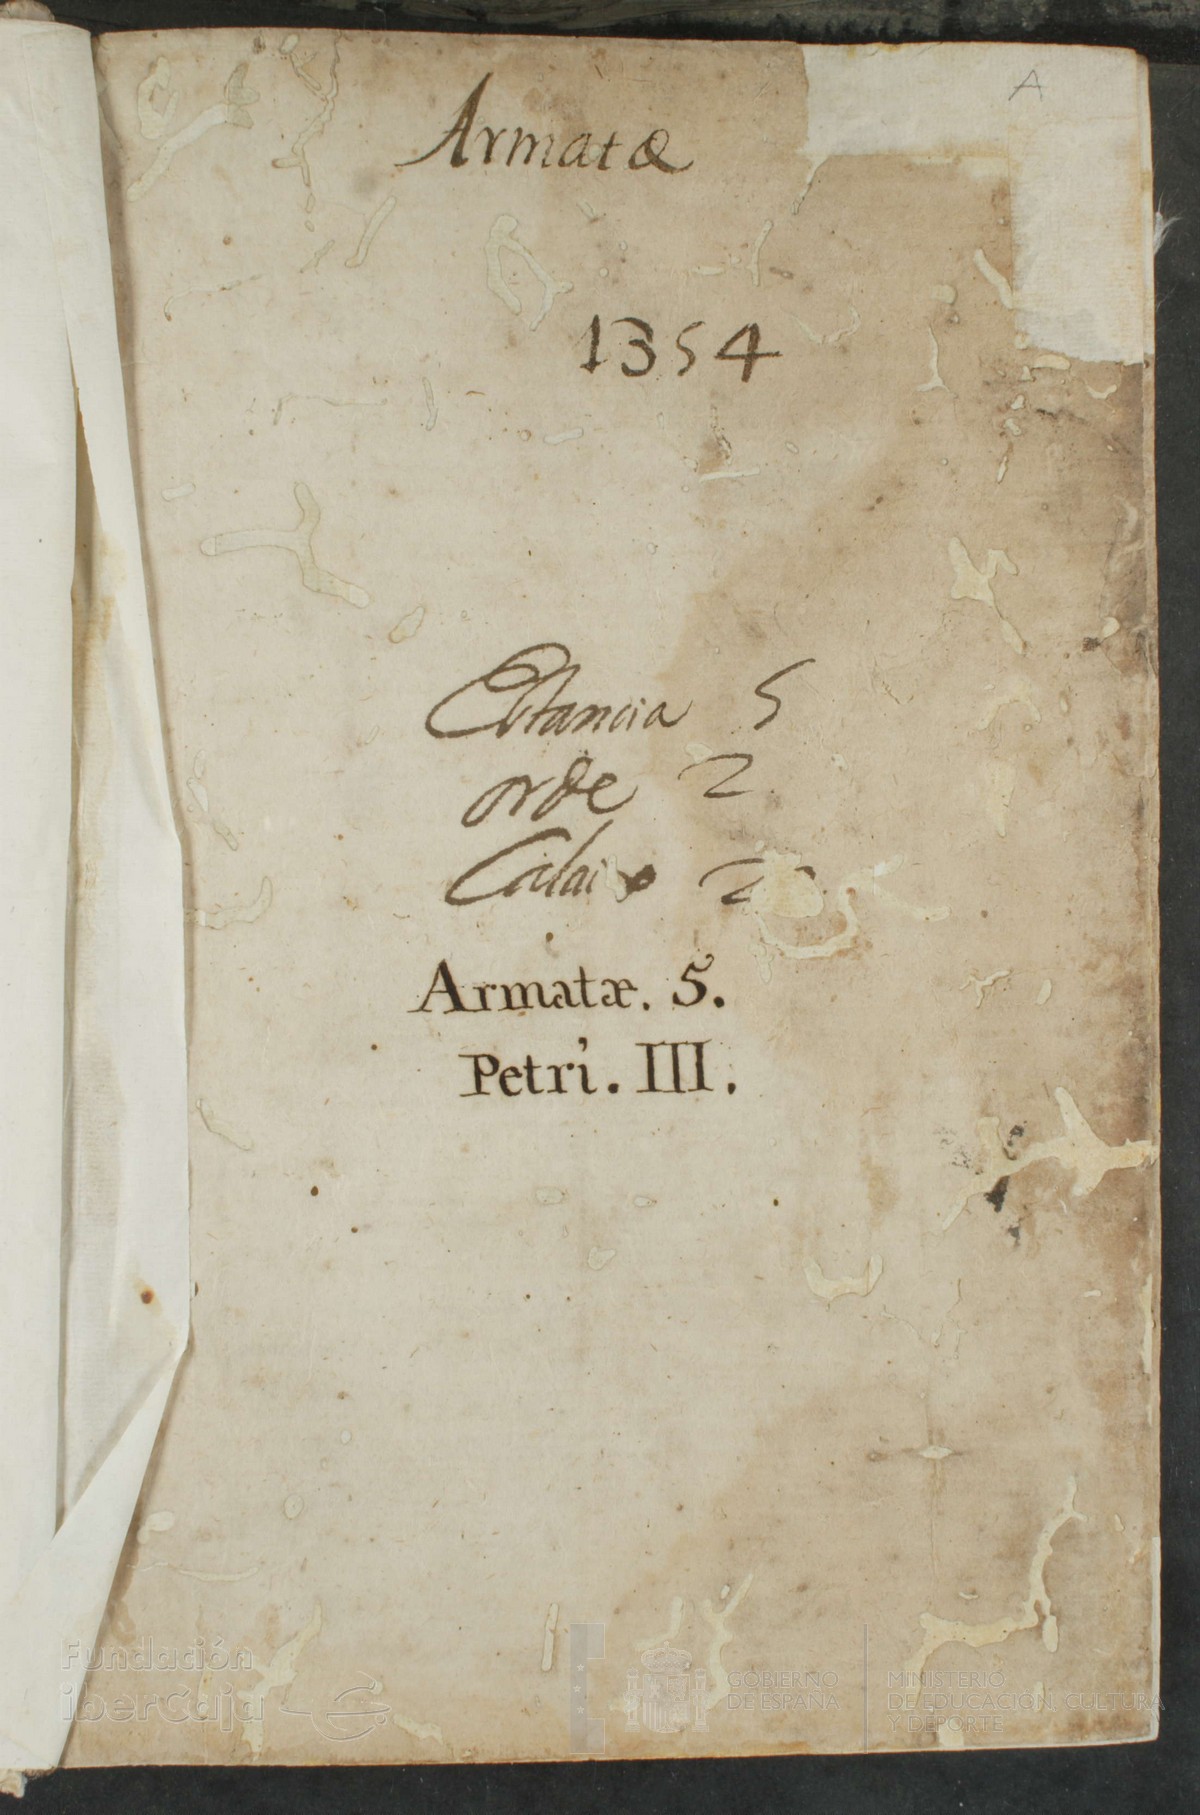 A
Armatæ
1354
Estancia 5
orde 2
Calaix 2
Armatæ. 5.
Petri. III.
Fundación
iberCaja
GOBIERNO
DE ESPAÑA
MINISTERIO
DE EDUCACIÓN, CULTURA
Y DEPORTE